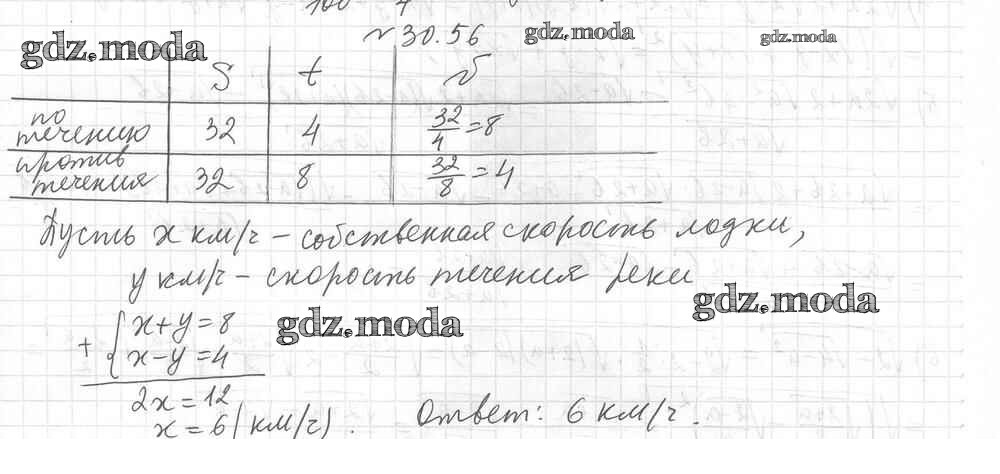 № 30.56
gdz.moda
gdz.moda
gdz.moda
S t v
по течению 32 4 32/4 = 8
против течения 32 8 32/8 = 4
Пусть x км/ч – собственная скорость лодки,
y км/ч – скорость течения реки
gdz.moda
gdz.moda
+ { x + y = 8
x – y = 4
2x = 12
x = 6 (км/ч).
Ответ: 6 км/ч.